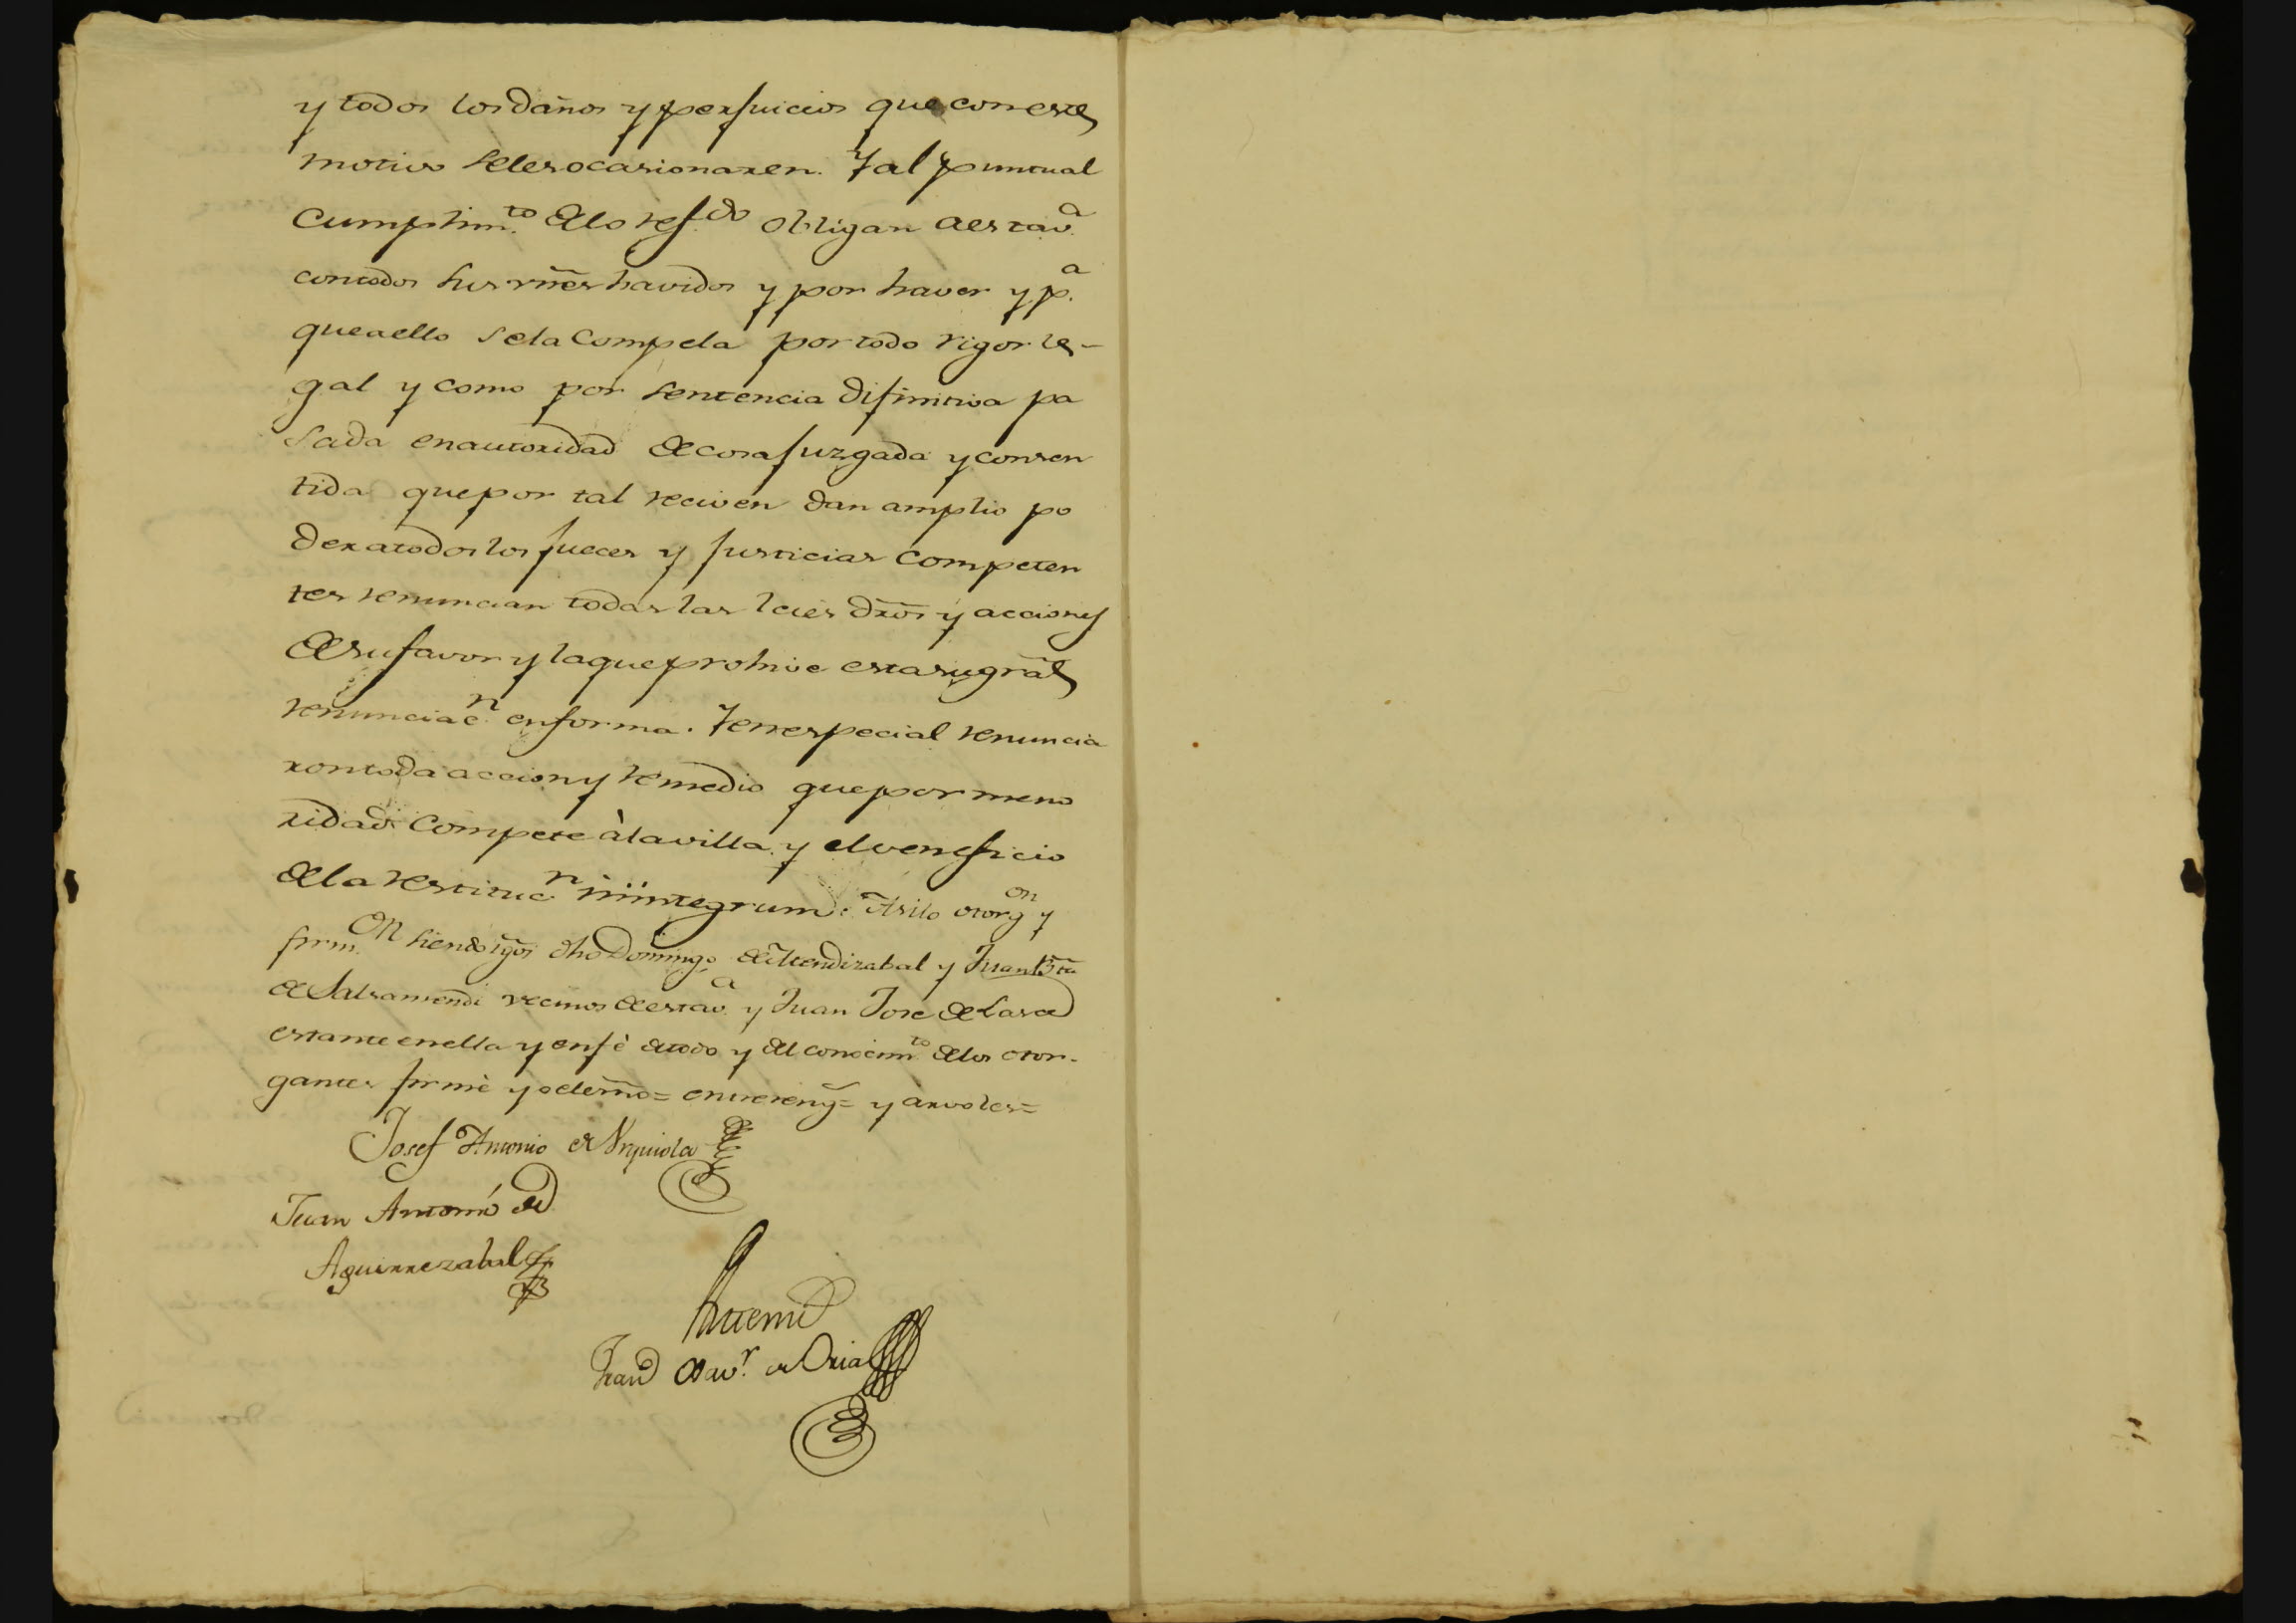 y todos los daños y perjuicios que con este
motivo se les ocasionaren. Y al puntual
cumplim.to de lo ref.do obligan a esta v.a
con todos sus vñes havidos y por haver y p.a
que a ello se la compela por todo rigor le-
gal y como por sentencia difinitiva pa
sada en autoridad de cosa juzgada y consen
tida que por tal reciven dan amplio po
der a todos los jueces y justicias competen
tes renuncian todas las leies dr̃os y acciones
de su favor y la que prohive esta su gr̃al
renunciac.n en forma. Y en especial renuncia
ron toda accion y remedio que por meno
ridad compete à la villa y el veneficio
de la restituc.n in integrum. Asi lo otorg.on y
firm.on siendo tg̃os dho Domingo de Mendizabal y Juan Bta
de Salsamendi vecinos de esta v.a y Juan Jose de Lasa
estante en ella y en fè de todo y del conocim.to de los otor-
gantes firmè yo el esno = entrereng = y arvoles =
Josef Antonio de Urquiola
Juan Antonio de
Aguirrezabal
Ante mi
Fran.co Xav.r de Oria